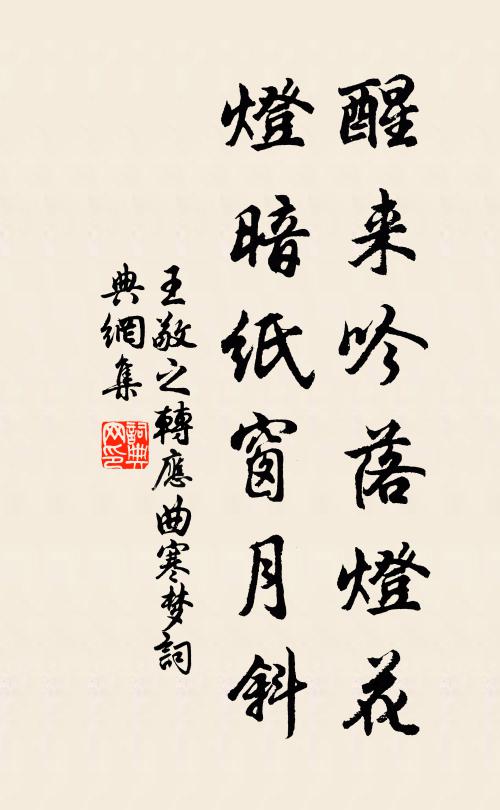 醒来吟落燈花
燈暗紙窗月斜
王敬之轉應曲寒梦詞
典網集
詞典网印